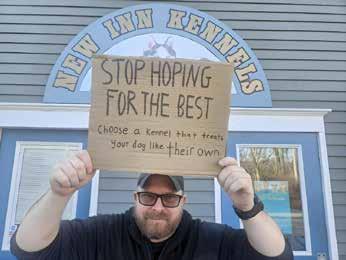 NEW INN KENNELS
STOP HOPING
FOR THE BEST
Choose a kennel that treats
your dog like their own